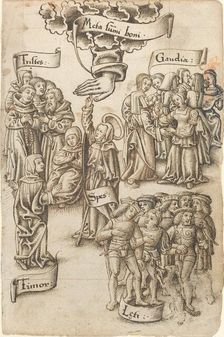 Meta sumi boni·
Tristes:
Gaudia:
Spes:
Timor:
Leti: